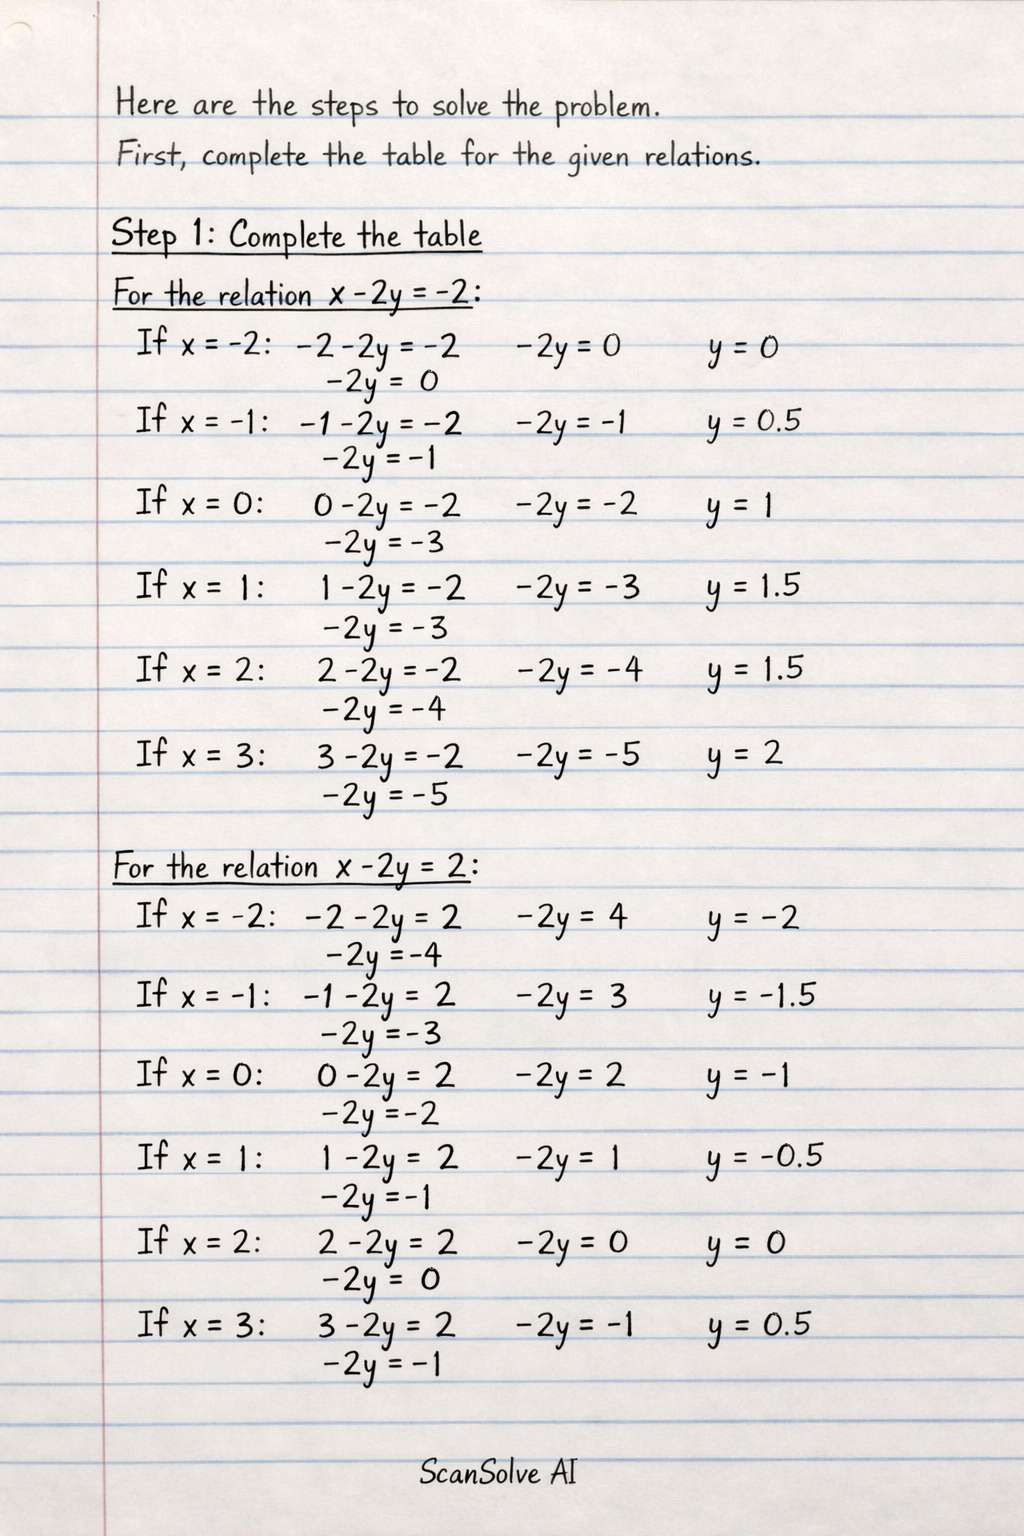 Here are the steps to solve the problem.
First, complete the table for the given relations.
Step 1: Complete the table
For the relation x - 2y = -2:
If x = -2: -2 - 2y = -2 -2y = 0 y = 0
-2y = 0
If x = -1: -1 - 2y = -2 -2y = -1 y = 0.5
-2y = -1
If x = 0: 0 - 2y = -2 -2y = -2 y = 1
-2y = -3
If x = 1: 1 - 2y = -2 -2y = -3 y = 1.5
-2y = -3
If x = 2: 2 - 2y = -2 -2y = -4 y = 1.5
-2y = -4
If x = 3: 3 - 2y = -2 -2y = -5 y = 2
-2y = -5
For the relation x - 2y = 2:
If x = -2: -2 - 2y = 2 -2y = 4 y = -2
-2y = -4
If x = -1: -1 - 2y = 2 -2y = 3 y = -1.5
-2y = -3
If x = 0: 0 - 2y = 2 -2y = 2 y = -1
-2y = -2
If x = 1: 1 - 2y = 2 -2y = 1 y = -0.5
-2y = -1
If x = 2: 2 - 2y = 2 -2y = 0 y = 0
-2y = 0
If x = 3: 3 - 2y = 2 -2y = -1 y = 0.5
-2y = -1
ScanSolve AI